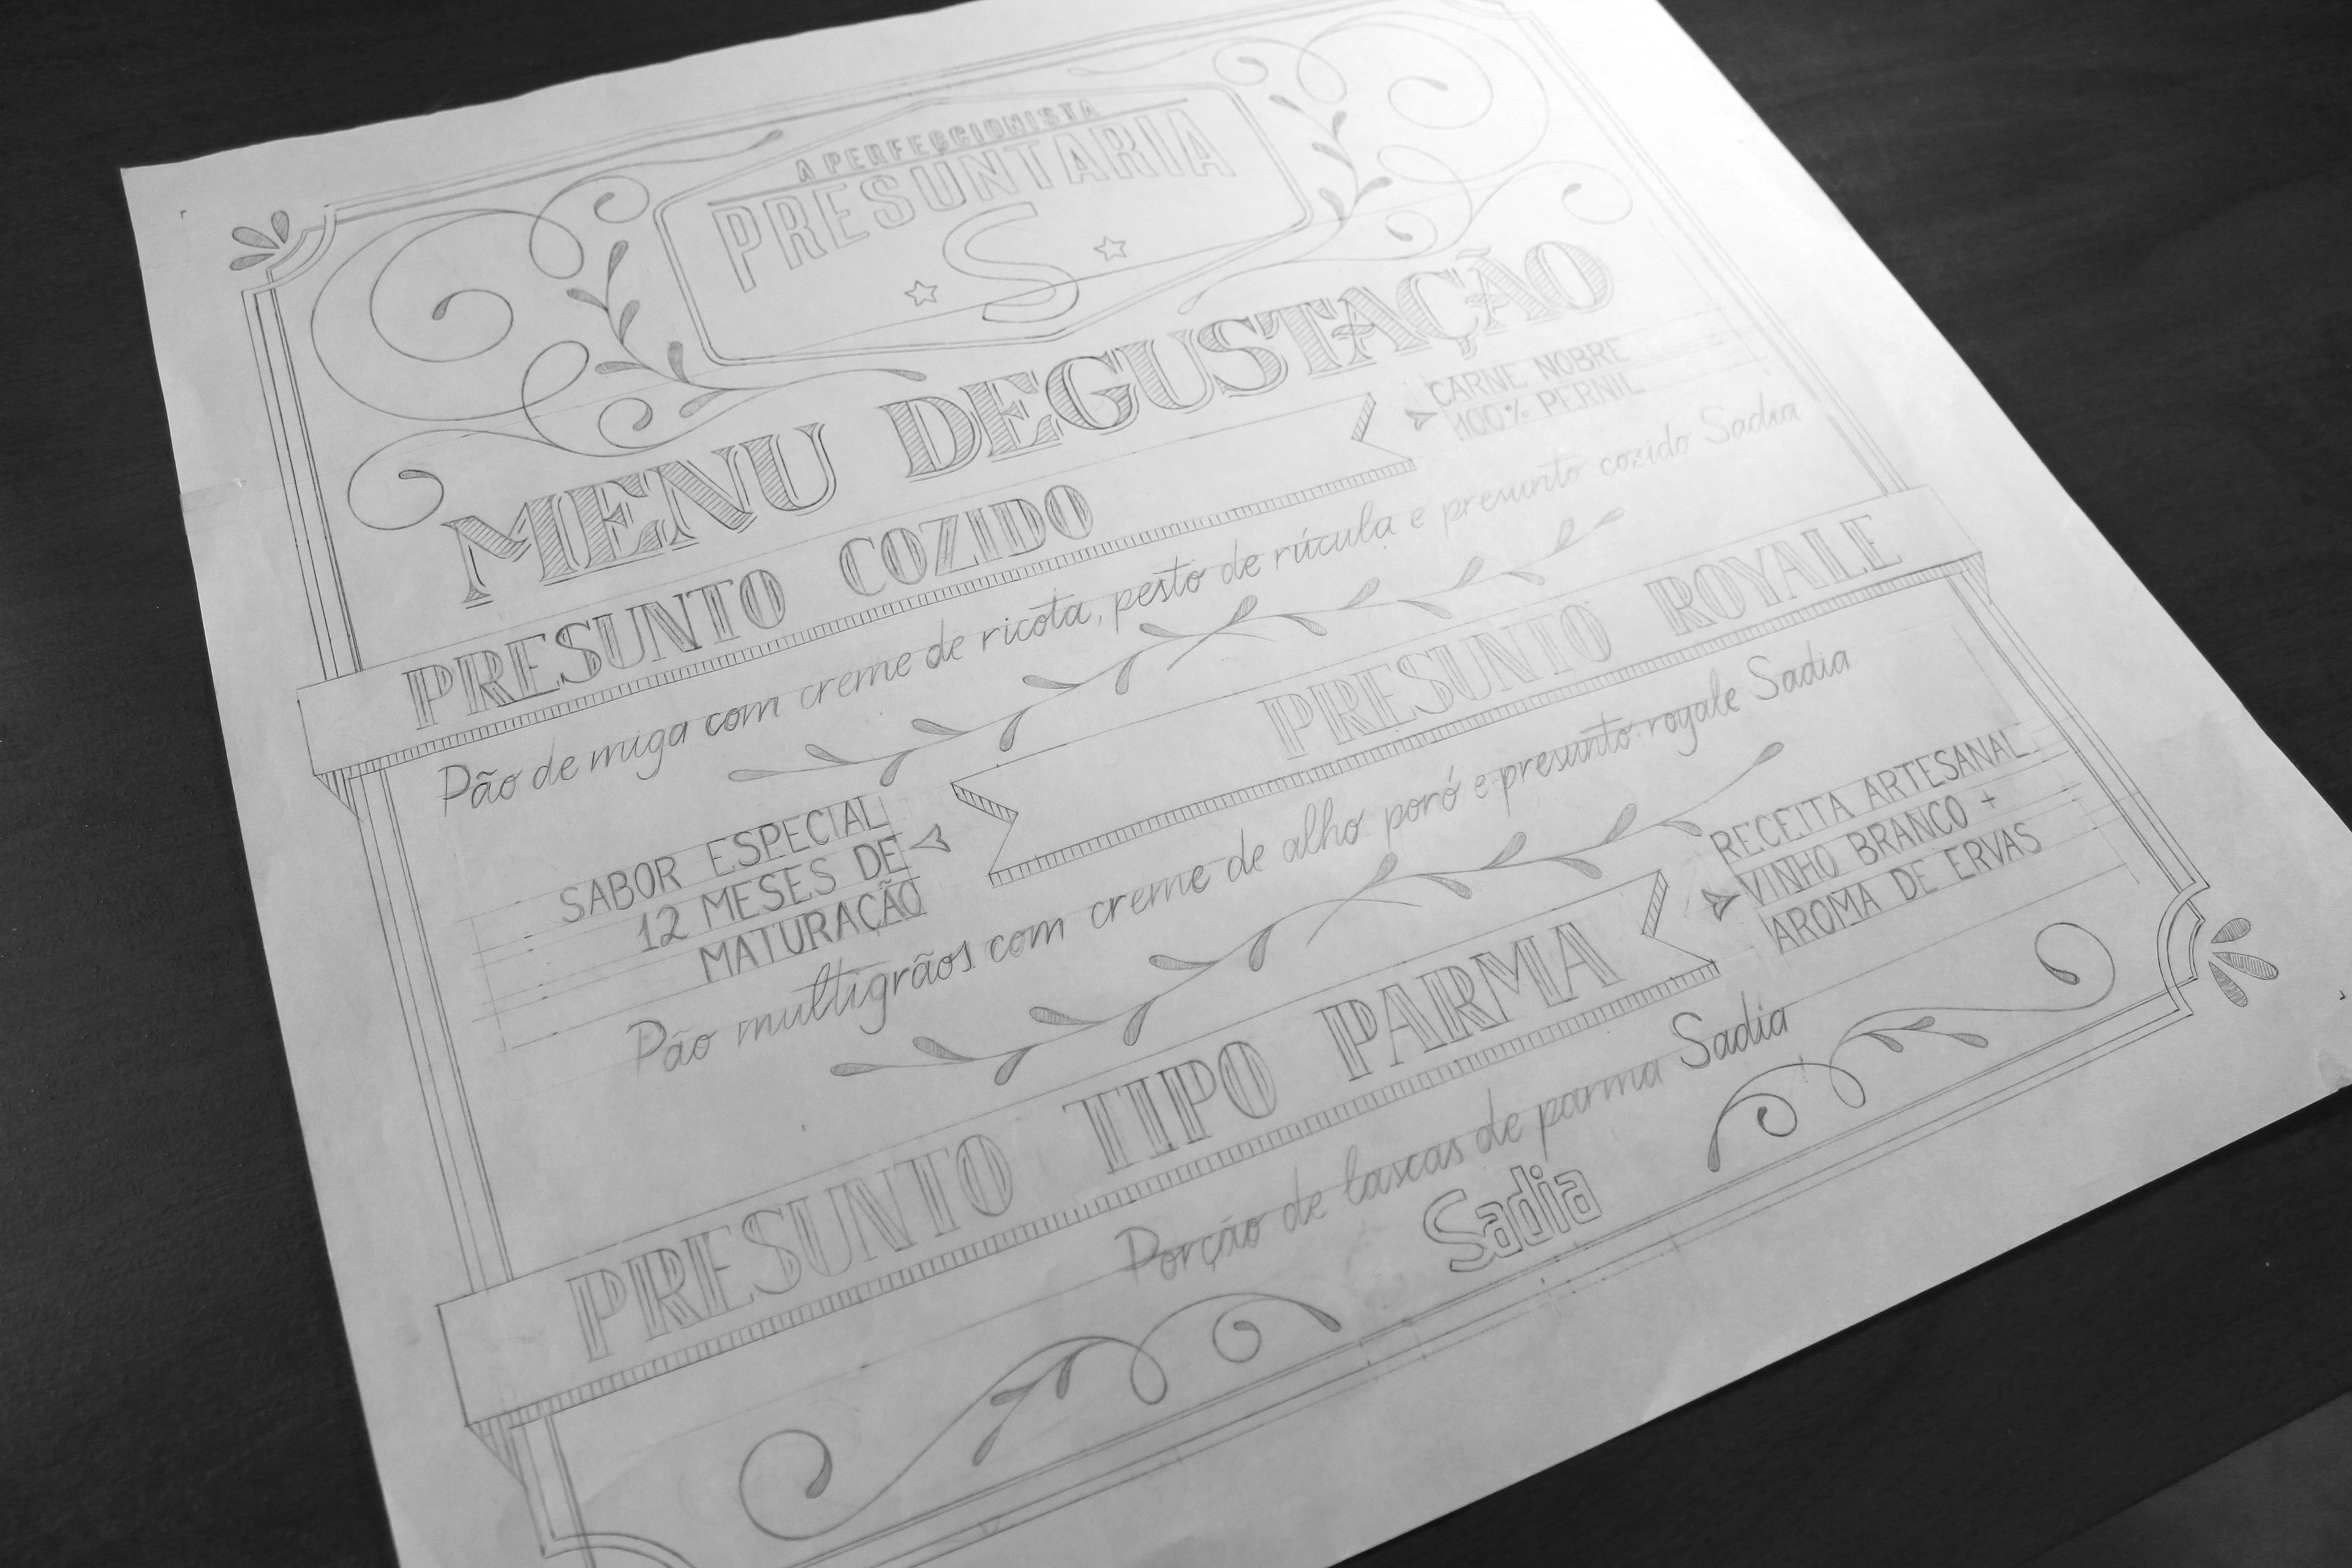 A PERFECCIONISTA
PRESUNTARIA
S
MENU DEGUSTAÇÃO
PRESUNTO COZIDO
CARNE NOBRE
100% PERNIL
Pão de miga com creme de ricota, pesto de rúcula e presunto cozido Sadia
PRESUNTO ROYALE
SABOR ESPECIAL
12 MESES DE
MATURAÇÃO
Pão multigrãos com creme de alho poró e presunto royale Sadia
PRESUNTO TIPO PARMA
RECEITA ARTESANAL
VINHO BRANCO +
AROMA DE ERVAS
Porção de lascas de parma Sadia
Sadia